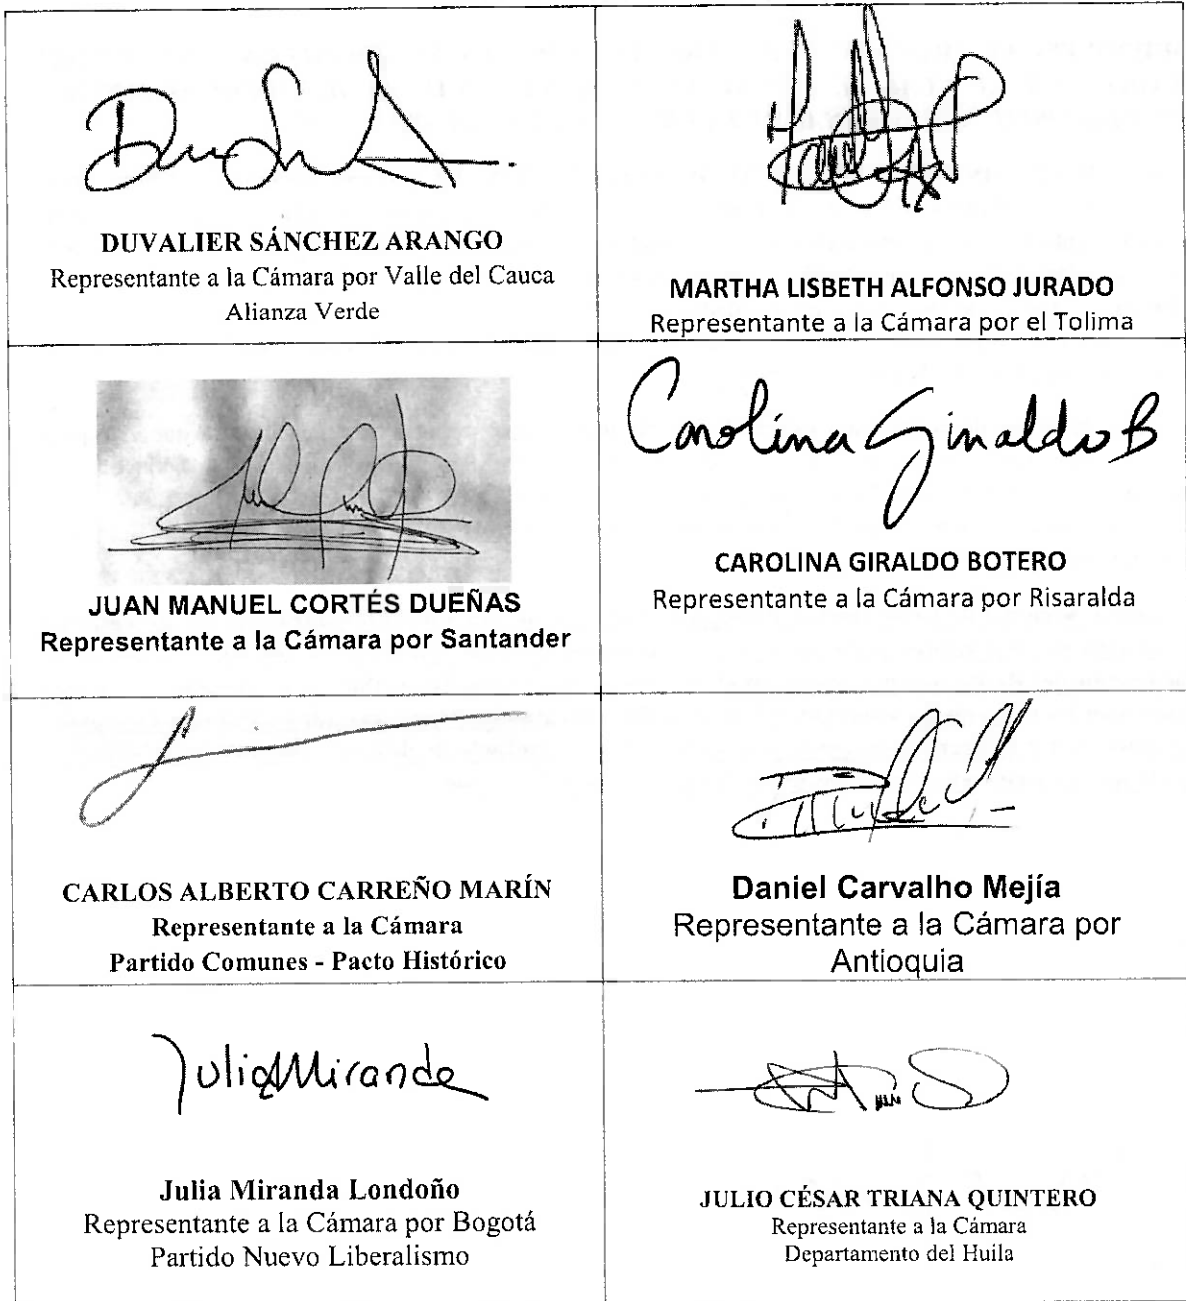 DUVALIER SÁNCHEZ ARANGO
Representante a la Cámara por Valle del Cauca
Alianza Verde
MARTHA LISBETH ALFONSO JURADO
Representante a la Cámara por el Tolima
JUAN MANUEL CORTÉS DUEÑAS
Representante a la Cámara por Santander
Carolina Giraldo B
CAROLINA GIRALDO BOTERO
Representante a la Cámara por Risaralda
CARLOS ALBERTO CARREÑO MARÍN
Representante a la Cámara
Partido Comunes - Pacto Histórico
Daniel Carvalho Mejía
Representante a la Cámara por
Antioquia
Julia Miranda
Julia Miranda Londoño
Representante a la Cámara por Bogotá
Partido Nuevo Liberalismo
JULIO CÉSAR TRIANA QUINTERO
Representante a la Cámara
Departamento del Huila